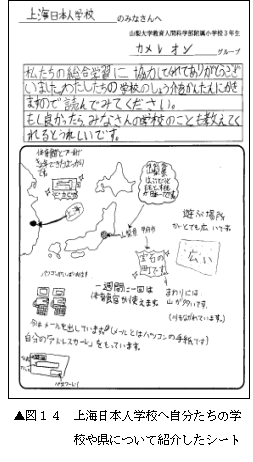 上海日本人学校 のみなさんへ
山梨大学教育人間科学部附属小学校3年生
カメレオン グループ
私たちの総合学習に協力してくれてありがとうござ
いました。わたしたちの学校のしょう介をかんたんにかき
ますので読んでみてください。
もし良かったらみなさんの学校のことも教えてく
れるとうれしいです。
遊ぶ場所
がとても広いです。
広い
山梨県 甲府市
宝石の
町です。
パソコンがいっぱいあります
一週間に一回は
体育館が使えます。
まわりには
山が多いです。
今はメールを出しています。(メールとはパソコンの手紙です)
自分の「アドレスカード」をもっています。
▲図14 上海日本人学校へ自分たちの学
校や県について紹介したシート